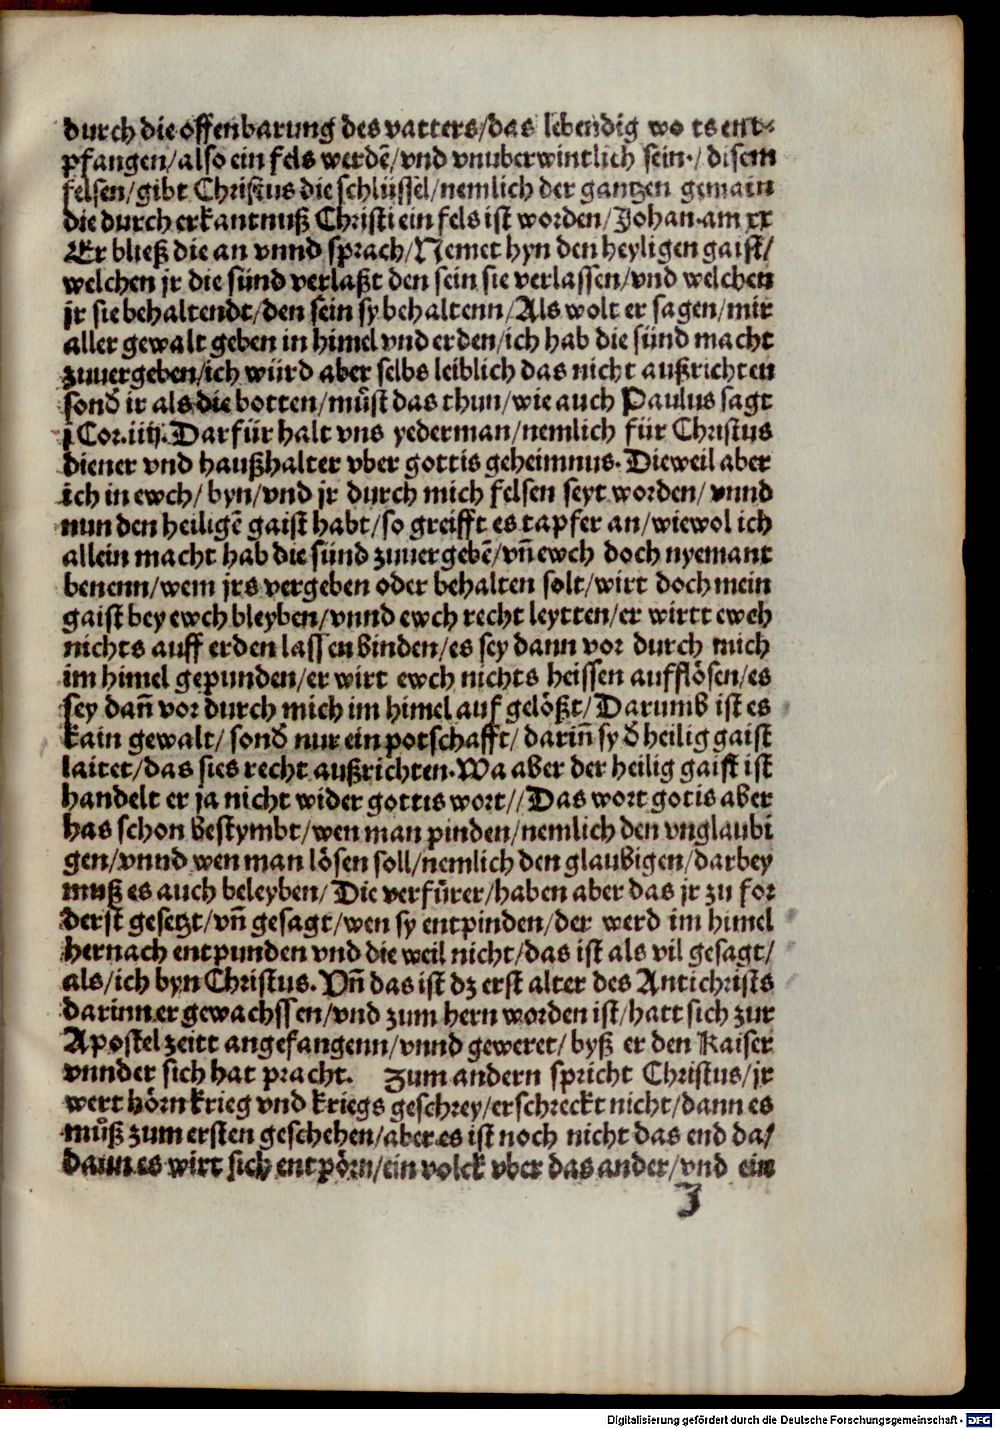 durch die offenbarung des vatters/das lebendig wo ts ent-
pfangen/also ein fels werdē/vnd vnuberwintlich sein·/disem
felsen/gibt Christus die schlüssel/nemlich der gantzen gemain
die durch erkantnuß Christi ein fels ist worden/Johan·am xx
Er bließ die an vnnd sprach/Nemet hyn den heyligen gaist/
welchen jr die sünd verlaßt den sein sie verlassen/vnd welchen
jr sie behaltendt/den sein sy behaltenn/Als wolt er sagen/mir
aller gewalt geben in himel vnd erden/ich hab die sünd macht
zuuergeben/ich würd aber selbs leiblich das nicht außrichten
sonđ ir als die botten/můst das thun/wie auch Paulus sagt
j Cor.iiij. Darfür halt vns yederman/nemlich für Christus
diener vnd haußhalter vber gottis geheimnus. Dieweil aber
ich in ewch/byn/vnd jr durch mich felsen seyt worden/vnnd
nun den heiligē gaist habt/so greifft es tapfer an/wiewol ich
allein macht hab die sünd zuuergebē/vn̄ ewch doch nyemant
benenn/wem jrs vergeben oder behalten solt/wirt doch mein
gaist bey ewch bleyben/vnnd ewch recht leytten/er wirtt eweh
nichts auff erden lassen binden/es sey dann vor durch mich
im himel gepunden/er wirt ewch nichts heissen aufflösen/es
sey dan̄ vor durch mich im himel auf gelößt/Darumb ist es
kain gewalt/sonđ nur ein potschafft/darin̄ sy đ heilig gaist
laitet/das sies recht außrichten. Wa aber der heilig gaist ist
handelt er ja nicht wider gottis wort//Das wort gotis aber
has schon bestymbt/wen man pinden/nemlich den vnglaubi
gen/vnnd wen man lösen soll/nemlich den glaubigen/darbey
muß es auch beleyben/Die verfürer/haben aber das jr zu for
derst gesetzt/vn̄ gesagt/wen sy entpinden/der werd im himel
hernach entpunden vnd die weil nicht/das ist als vil gesagt/
als/ich byn Christus. Vn̄ das ist dz erst alter des Antichrists
darinn er gewachssen/vnd zum hern worden ist/hatt sich zur
Apostel zeitt angefangenn/vnnd geweret/byß er den Kaiser
vnnder sich hat pracht. Zum andern spricht Christus/jr
wert hörn krieg vnd kriegs geschrey/erschreckt nicht/dann es
můß zum ersten geschehen/aber es ist noch nicht das end da/
dann es wirt sich entpörn/ein volck vber das ander/vnd ein
J
Digitalisierung gefördert durch die Deutsche Forschungsgemeinschaft - DFG